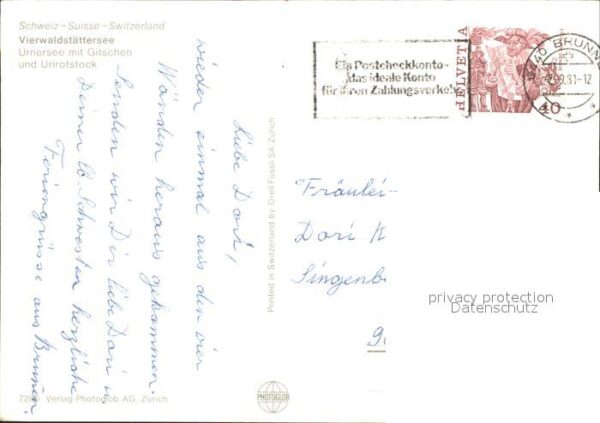 Schweiz – Suisse – Switzerland
Vierwaldstättersee
Urnersee mit Gitschen
und Urirotstock
Liebe Dori,
wieder einmal aus den vier
Wänden heraus gekommen.
Senden wir Dir liebe Dori u.
Deiner lb. Schwester herzliche
Feriengrüsse aus Brunnen.
Printed in Switzerland by Orell Füssli SA Zürich
Verlag Photoglob AG, Zürich
PHOTOGLOB
Ein Postcheckkonto-
das ideale Konto
für Ihren Zahlungsverkehr
HELVETIA
40
6440 BRUNN
99.81-12
Fräulei-
Dori
Singenb
9
privacy protection
Datenschutz